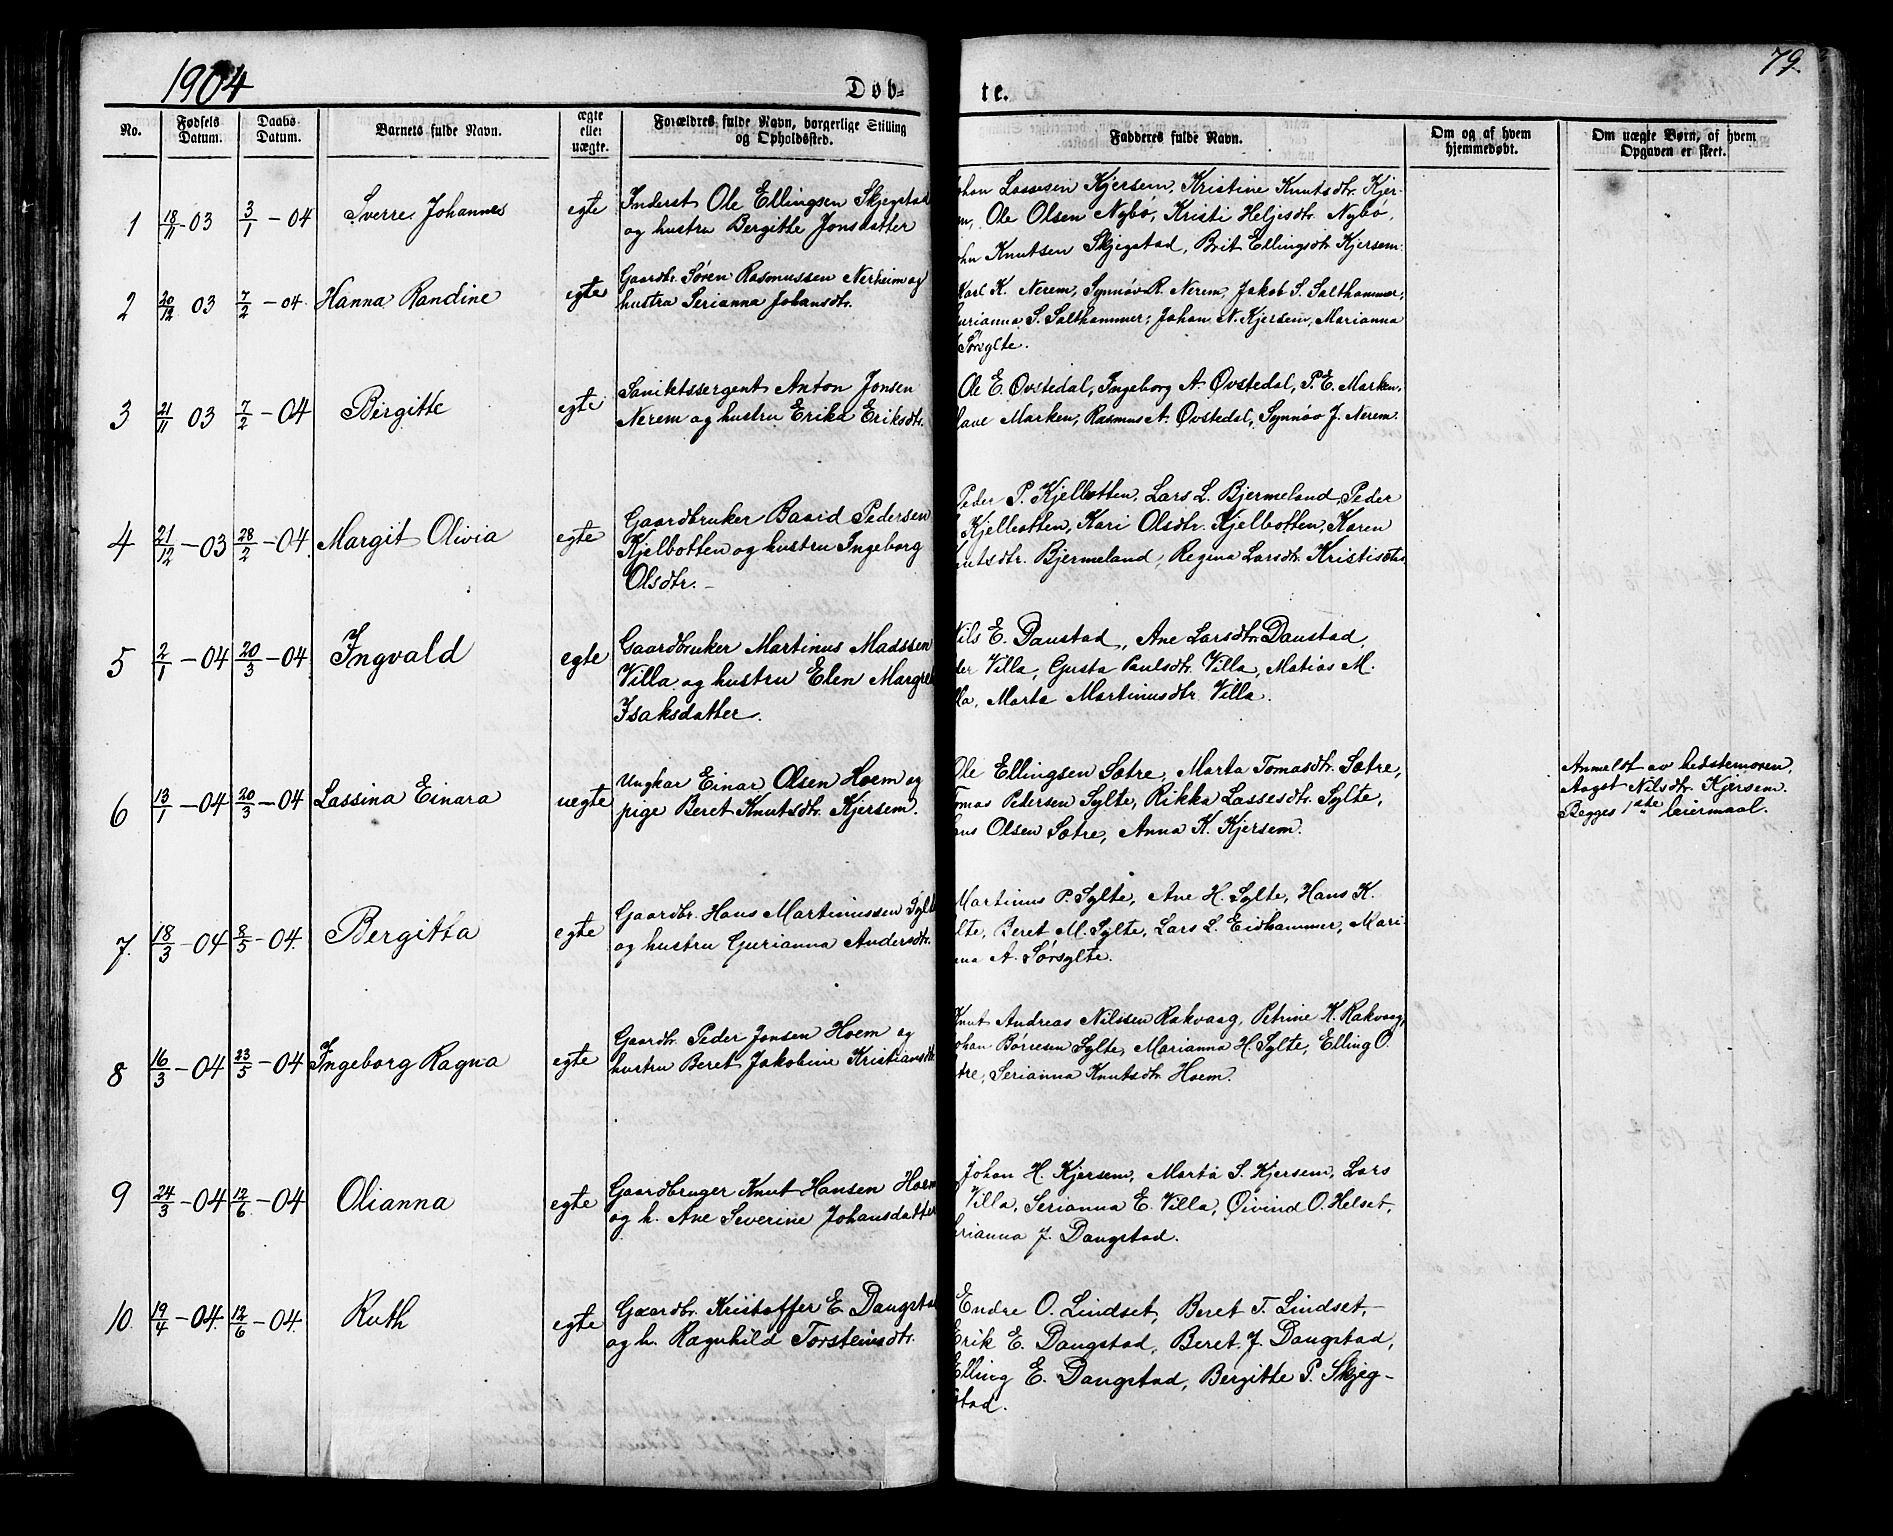 1904
Døb-
te.
79
No.
Fødsels Datum.
Daabs Datum.
Barnets fulde Navn.
ægte eller uægte.
Forældres fulde Navn, borgerlige Stilling og Opholdssted.
Fadderes fulde Navn.
Om og af hvem hjemmedøbt.
Om uægte Børn, af hvem Opgaven er skeet.
1 18/11-03 3/1-04 Sverre Johannes egte
Inderst Ole Ellingsen Skjegstad
og hustru Bergitte Jonsdatter
Johan Lassesen Kjersem, Kristine Knutsdtr. Kjer-
em, Ole Olsen Nybø, Kristi Heljesdtr. Nybø,
John Knutsen Skjegstad, Brit Ellingsdtr Kjersem.
2 20/12 03 7/2-04. Hanna Randine egte
Gaardbr. Søren Rasmussen Nerheim og
hustru Serianna Johansdtr.
Karl K. Nerem, Synnøv R. Nerem, Jakob S. Salthammer,
Gurianna S. Salthammer, Johan N. Kjersem, Marianna
Sørsylte.
3 21/11 03 7/2-04 Birgitte egte
Anton Jonsen
Nerem og hustru Erika Eriksdtr.
Ole E. Øvstedal, Ingeborg A. Øvstedal, P. E. Marken,
lave Marken, Rasmus A. Øvstedal, Synnøv J. Nerem.
4 21/12-03 28/2-04. Margit Olivia egte
Gaardbruker Baard Pedersen
Kjelbotten og hustru Ingeborg
Olsdtr.-
Peder P. Kjelbotten, Lars L. Bjermeland, Peder
Kjelbotten, Kari Olsdtr. Kjelbotten, Karen
Knutsdtr. Bjermeland, Regina Larsdtr. Kristisæter
5 2/1-04 20/3-04 Ingvald egte
Gaardbruker Martinus Madssen
Villa og hustru Elen Margret
Isaksdatter.
Nils E. Daustad, Ane Larsdtr. Daustad,
der Villa, Gusta Paulsdtr. Villa, Matias M.
lla, Marta Martinusdtr. Villa.
6 13/1-04 20/3-04 Lassina Einara uegte
Ungkar Einar Olsen Hoem og
pige Beret Knutsdtr. Kjersem.
Ole Ellingsen Sætre, Marta Tomasdtr. Sætre,
Tomas Petersen Sylte, Rikka Lassesdtr. Sylte,
ans Olsen Sætre, Anna K. Kjersem.
Anmeldt av bedstemoren,
Aagot Nilsdtr. Kjersem.
Begges 1ste leiermaal.
7. 18/3-04 8/5-04. Bergitta egte
Gaardbr. Hans Martinussen Sylte
og hustru Gurianna Andersdtr.
Martinus P. Sylte, Ane H. Sylte, Hans K.
ylte, Beret M. Sylte, Lars L. Eidhammer, Mari-
nna A. Sørsylte.
8 16/3-04 23/5-04 Ingeborg Ragna egte
Gaardbr. Peder Jonsen Hoem og
hustru Beret Jakobine Kristiansdtr
Knut Andreas Nilssen Rakvaag, Petrine K. Rakvaag,
Johan Børresen Sylte, Marianna H. Sylte, Elling O.
tre, Serianna Knutsdtr Hoem.
9 24/3-04 12/6-04 Olianna egte
Gaardbruger Knut Hansen Hoem
og h. Ane Severine Johansdatter
Johan H. Kjersem, Marta S. Kjersem, Lars
Villa, Serianna E. Villa, Øivind O. Helset,
erianna J. Daugstad.
10. 19/4-04. 12/6-04. Ruth egte
Gaardbr. Kristoffer E. Daugstad
og h. Ragnhild Torsteinsdtr.
Endre O. Lindset, Beret T. Lindset,-
Erik E. Daugstad, Beret J. Daugstad,
Elling E. Daugstad, Bergitte P. Skjeg-
stad.